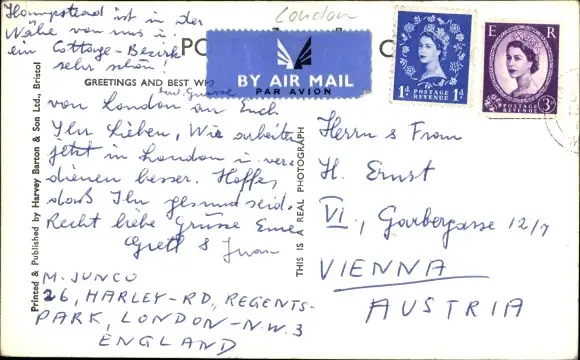 Hampstead ist in der
Nähe von uns u.
ein Cottage-Bezirk
sehr schön!
London
PO
C
GREETINGS AND BEST WI
und Grüsse
von London an Euch
Ihr Lieben, Wir arbeiten
jetzt in London u. ver-
dienen besser. Hoffe,
daß Ihr gesund seid.
Recht liebe Grüsse Eure
Gretl & Juan
M. JUNCO
26, HARLEY-RD, REGENTS-
PARK, LONDON-N.W.3
ENGLAND
BY AIR MAIL
PAR AVION
1d POSTAGE REVENUE 1d
E R
POSTAGE REVENUE 3d
Herrn & Frau
H. Ernst
VI., Garbergasse 12/7
VIENNA
AUSTRIA
Printed & Published by Harvey Barton & Son Ltd., Bristol
THIS IS A REAL PHOTOGRAPH